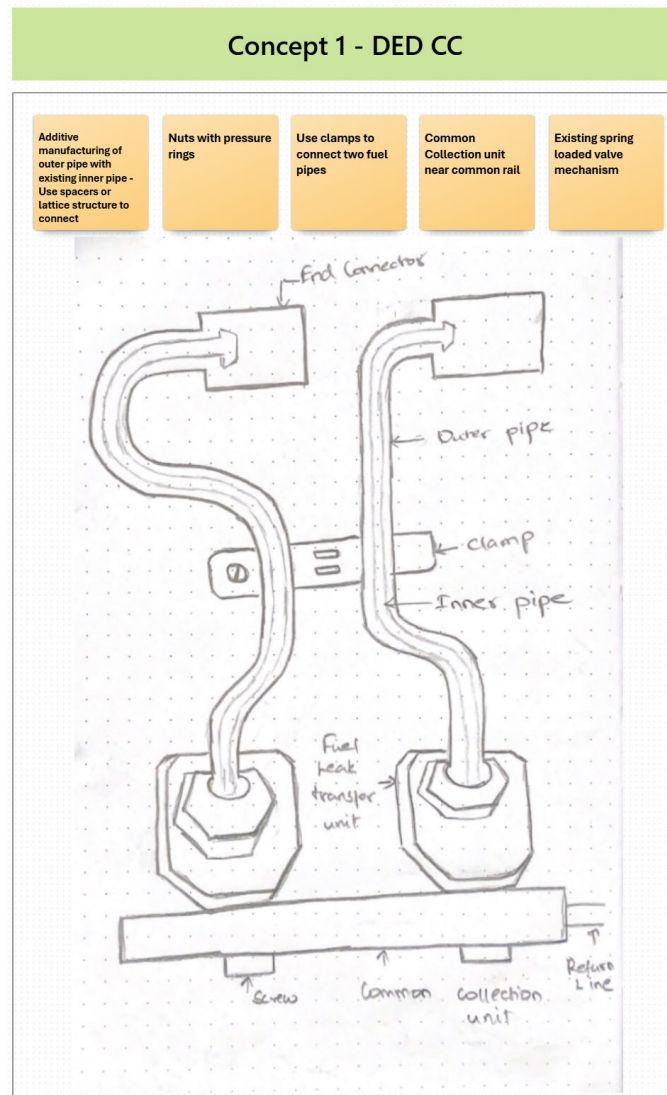 Concept 1 - DED CC
Additive
manufacturing of
outer pipe with
existing inner pipe -
Use spacers or
lattice structure to
connect
Nuts with pressure
rings
Use clamps to
connect two fuel
pipes
Common
Collection unit
near common rail
Existing spring
loaded valve
mechanism
End Connector
Outer pipe
clamp
Inner pipe
Fuel
Leak
transfer
unit
Screw
Common Collection
unit
Return
Line